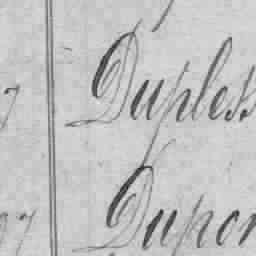 7 Dupless
97 Dupon